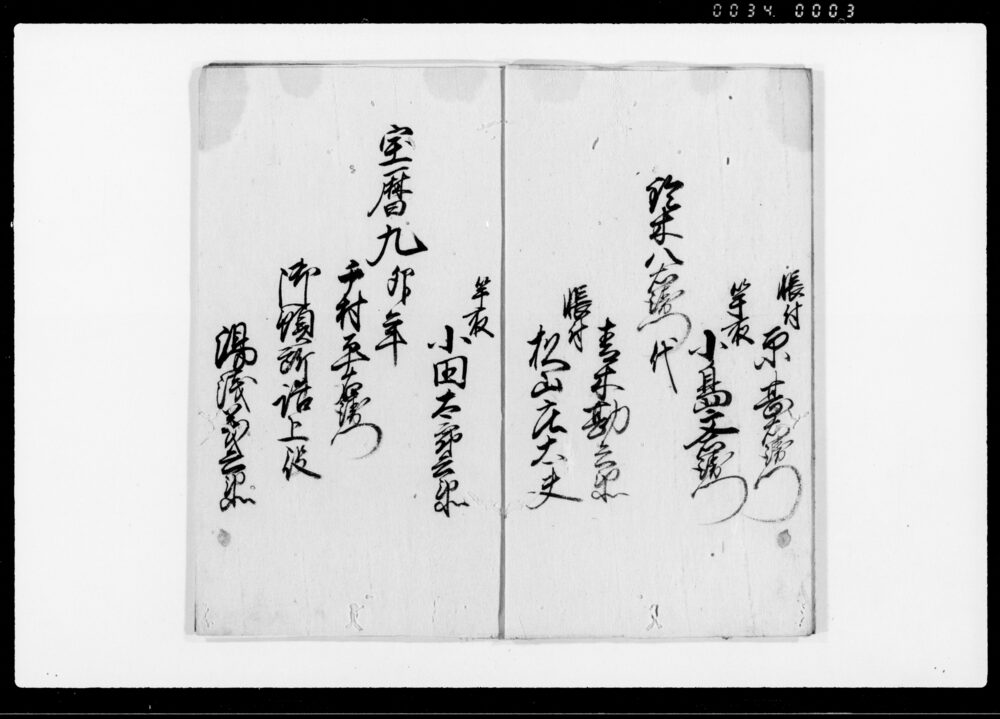 0034 0003
帳付
原甚右衛門
竿取
小島文右衛門
鈴木八右衛門代
青木勘兵衛
帳付
松山庄太夫
竿取
小田太郎兵衛
宝暦九卯年
千村平右衛門
御預所詰上役
湯浅兵衛